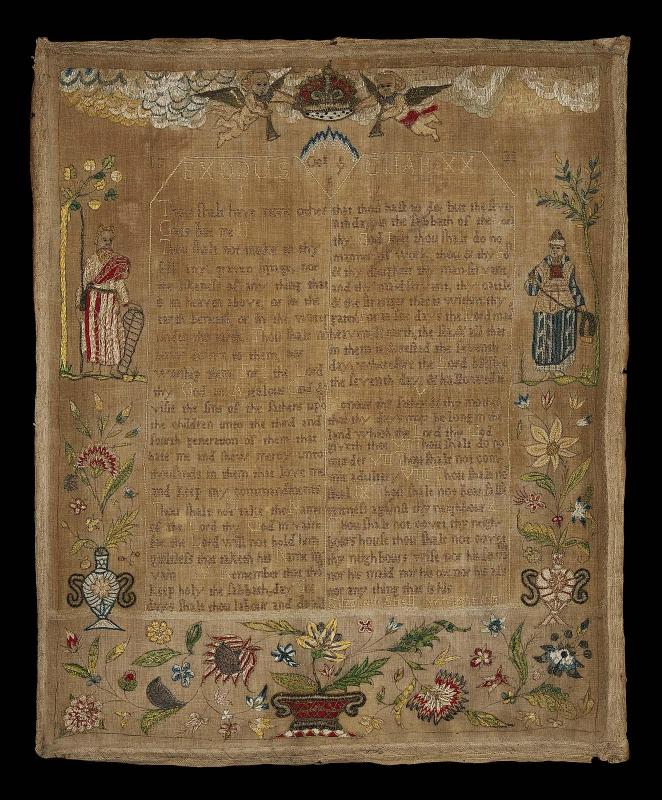 EXODUS CHAP XX
Thou shalt have none other
Gods but me
Thou shalt not make to thy
self any graven image, nor
the likeness of any thing that
is in heaven above, or in the
earth beneath, or in the water
under the earth. Thou shalt not
to them, nor
worship them for the Lord
thy God am a jealous God &
visit the sins of the fathers upo
the children unto the third and
fourth generation of them that
hate me and shew mercy unto
thousands in them that love me
and keep my commandments
Thou shalt not take the Name
of the Lord thy God in vain:
for the Lord will not hold him
guiltless that taketh his Name in
vain Remember that thou
keep holy the sabbath-day
days shalt thou labour and do all
that thou hast to do but the seve
nth day is the sabbath of the Lord
thy God in it thou shalt do no
manner of work, thou & thy
& thy daughter thy man servant
and thy maid-servant, thy cattle
& the stranger that is within thy
For in six days the Lord mad
heaven & earth, the sea & all that
in them is & rested the seventh
day, wherefore the Lord blessed
the seventh day & hallowed it
Honour thy father & thy mother
that thy days may be long in the
land which the Lord thy God
giveth thee Thou shalt do no
murder Thou shalt not com
mit adultery Thou shalt not
steal Thou shalt not bear false
witness against thy neighbour
Thou shalt not covet thy neigh-
bours house thou shalt not covet
thy neighbours wife nor his
nor his maid nor his ox nor his ass
nor any thing that is his